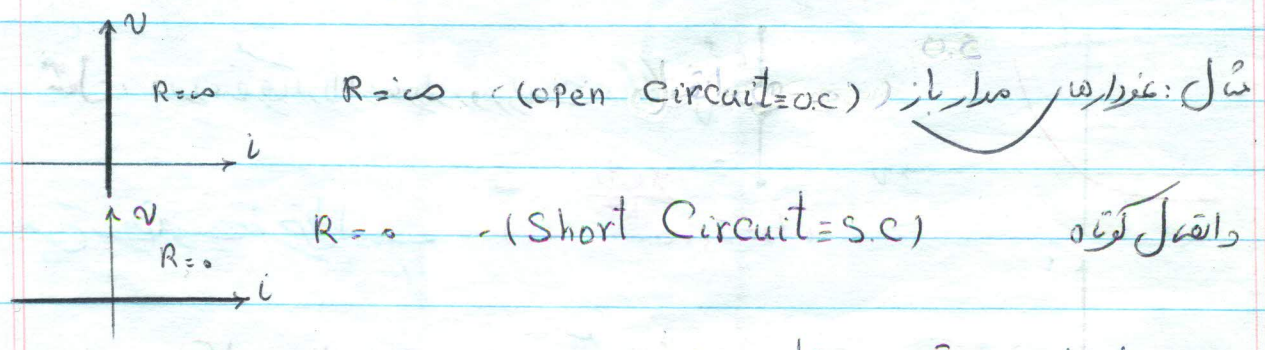 مثال: نمودارهای مدار باز (open Circuit=O.C) - R=∞
v
R=∞
i
واتصال کوتاه (Short Circuit=S.C) - R=۰
v
R=۰
i